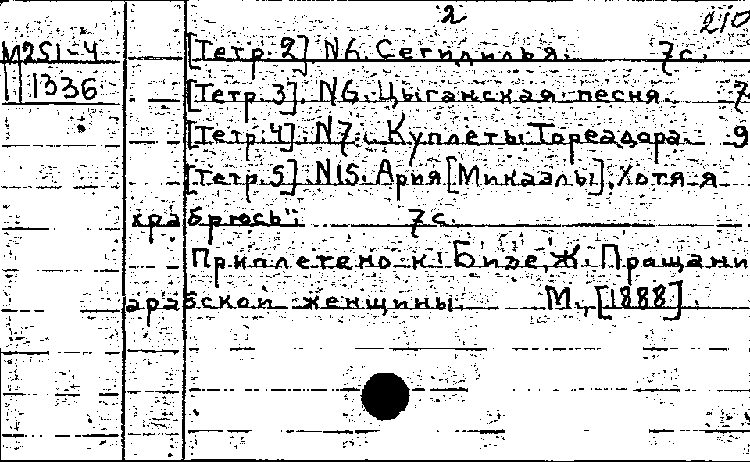 2 210
М251-4 [Тетр. 2] N6. Сегидилья. 7с.
1336 [Тетр. 3]. N6. Цыганская песня. 7
[Тетр. 4]. N7. Куплеты Тореадора. 9
[Тетр. 5]. N15. Ария [Микаэлы]. "Хотя я
храбрюсь". 7с.
Приплетено к: Бизе, Ж. Прощани
арабской женщины. М., [1888].